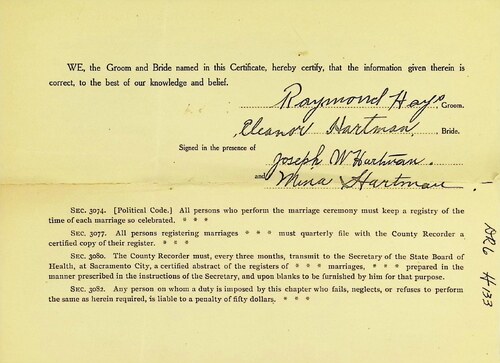 WE, the Groom and Bride named in this Certificate, hereby certify, that the information given therein is
correct, to the best of our knowledge and belief.
Raymond Hays Groom.
Eleanor Hartman, Bride.
Signed in the presence of
Joseph W Hartman.
and Mina Hartman
SEC. 3074. [Political Code.] All persons who perform the marriage ceremony must keep a registry of the
time of each marriage so celebrated. * * *
SEC. 3077. All persons registering marriages * * * must quarterly file with the County Recorder a
certified copy of their register. * * *
SEC. 3080. The County Recorder must, every three months, transmit to the Secretary of the State Board of
Health, at Sacramento City, a certified abstract of the registers of * * * marriages, * * * prepared in the
manner prescribed in the instructions of the Secretary, and upon blanks to be furnished by him for that purpose.
SEC. 3082. Any person on whom a duty is imposed by this chapter who fails, neglects, or refuses to perform
the same as herein required, is liable to a penalty of fifty dollars. * * *